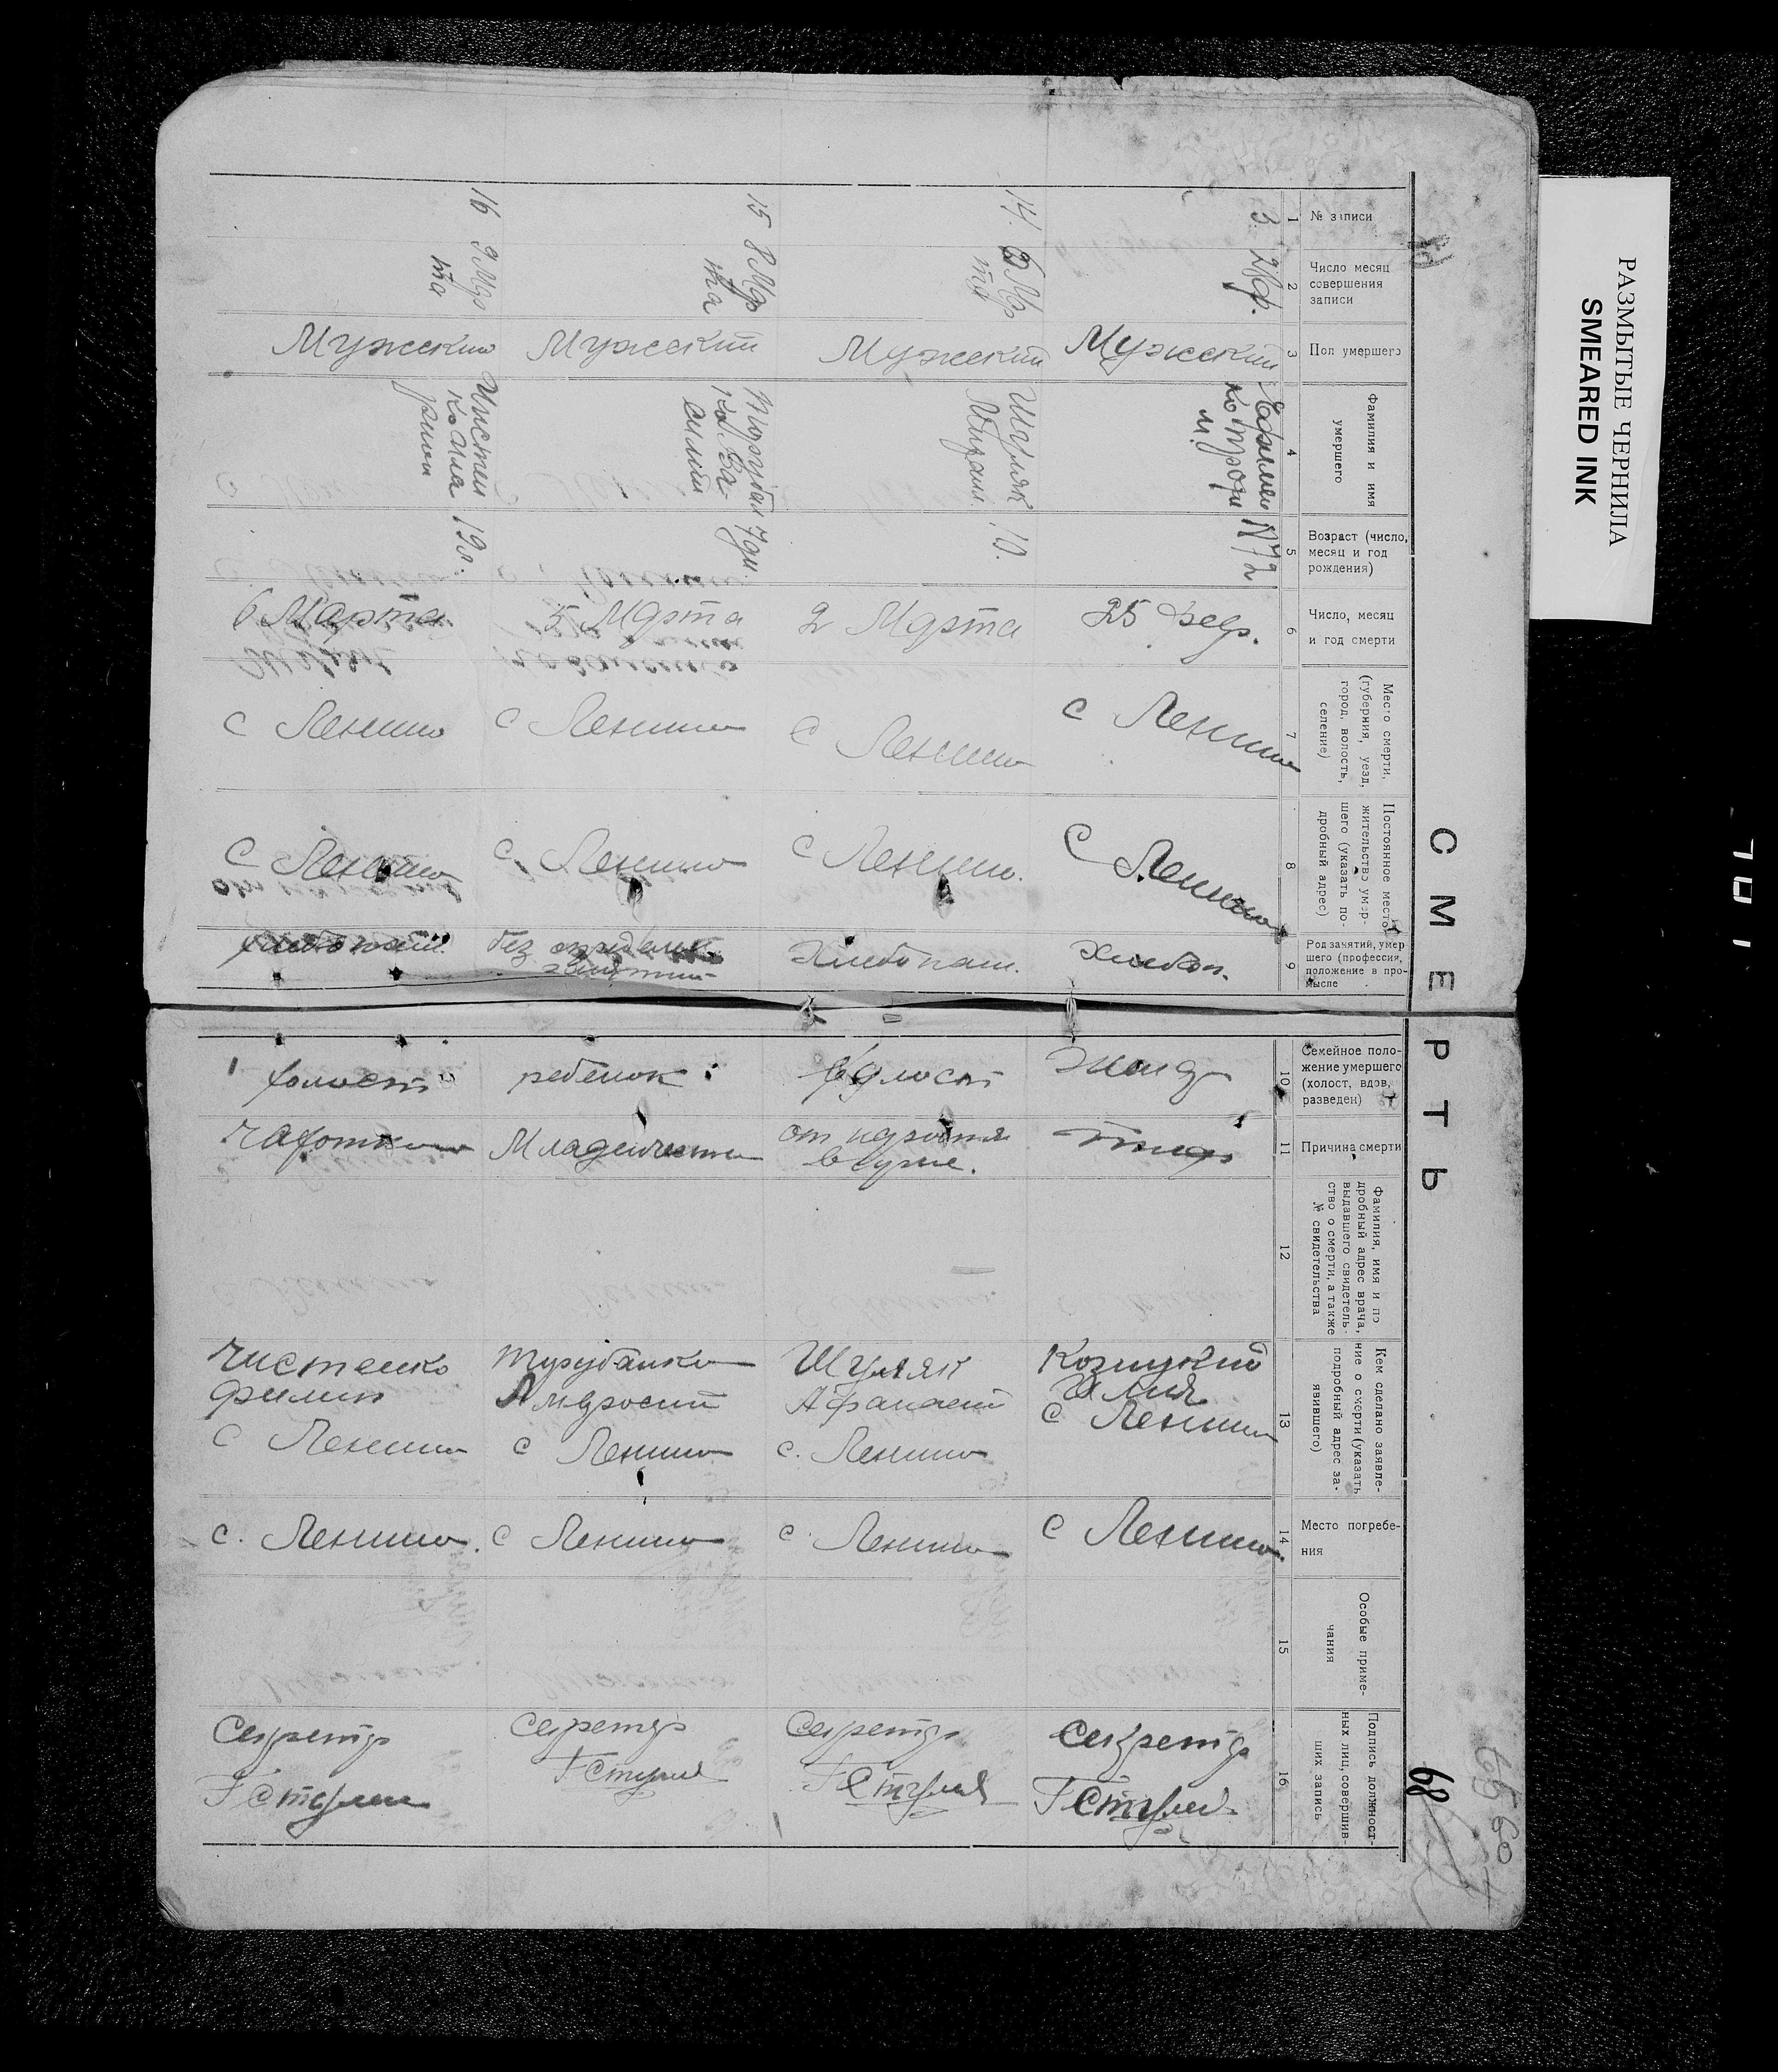 РАЗМЫТЫЕ ЧЕРНИЛА
SMEARED INK
СМЕРТЬ
68
65 60
1
№ записи
2
Число месяц
совершения
записи
3
Пол умершего
4
Фамилия и имя
умершего
5
Возраст (число,
месяц и год
рождения)
6
Число, месяц
и год смерти
7
Место смерти,
(губерния, уезд,
город, волость,
селение)
8
Постоянное место
жительство умер-
шего (указать по-
дробный адрес)
9
Род занятий, умер
шего (профессия,
положение в про-
мысле
10
Семейное поло-
жение умершего
(холост, вдов,
разведен)
11
Причина смерти
12
Фамилия, имя и по
дробный адрес врача,
выдавшего свидетель-
ство о смерти, а также
№ свидетельства
13
Кем сделано заявле-
ние о смерти (указать
подробный адрес за-
явившего)
14
Место погребе-
ния
15
Особые приме-
чания
16
Подпись должност-
ных лиц, совершив-
ших запись
3.
Мужский
25 Февр.
с Ленино
с Ленино
Хлебоп.
Козицкий
Илия
с Ленино
с Ленино.
Секретр
14.
6 Мар
та
Мужский
Шуляк
10.
2 Марта
с Ленино
с Ленино.
Хлебопаш.
холост
Шуляк
Афанасий
с. Ленино
с. Ленино
Секретр
15
8 Мар
та
Мужский
7 дн.
5 Марта
с Ленино
с Ленино
без определ.
занятий
ребенок
Младенческая
Амвросий
с Ленино
с Ленино
Секретр
16
9 Мар
та
Мужский
Чистен
ко Илла
рион
19 л.
6 Марта
с Ленино
с Ленино
хлебопаш.
холост
Чахотка
Чистенко
Филип
с Ленино
с. Ленино.
Секретр